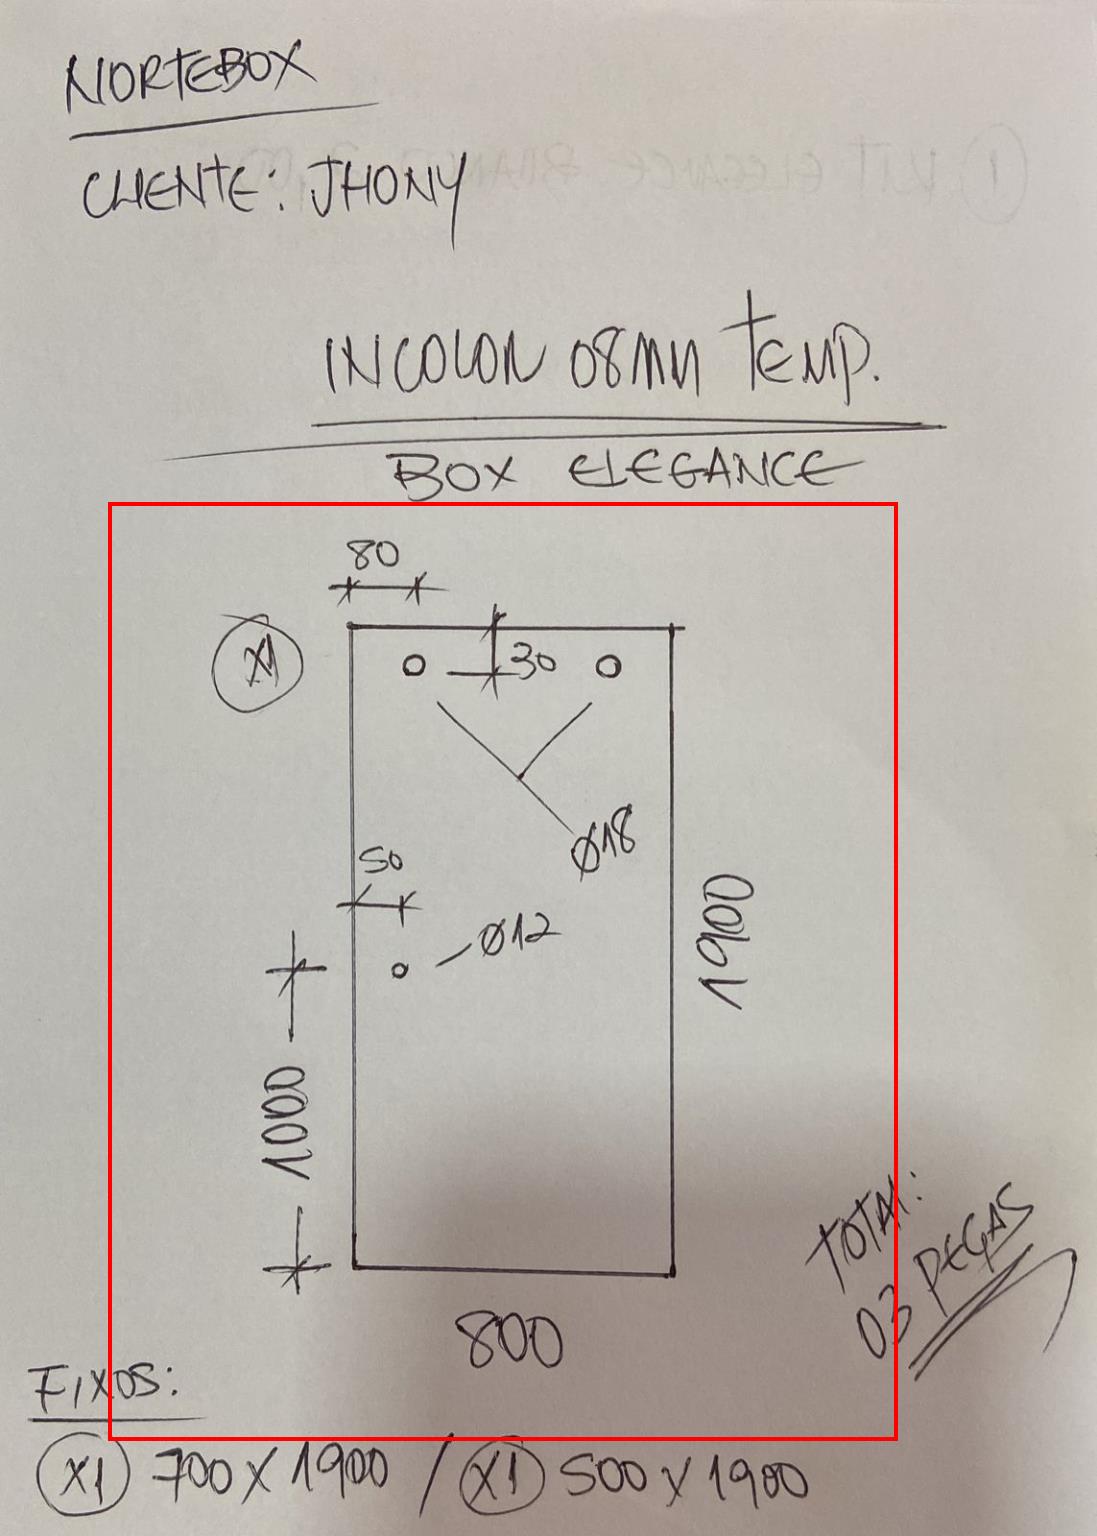 NORTEBOX
CLIENTE: JHONY
INCOLOR 08MM TEMP.
BOX ELEGANCE
80
X1
30
Ø18
50
Ø12
1900
1000
800
TOTAL:
03 PEÇAS
FIXOS:
X1 700 X 1900 / X1 500 X 1900